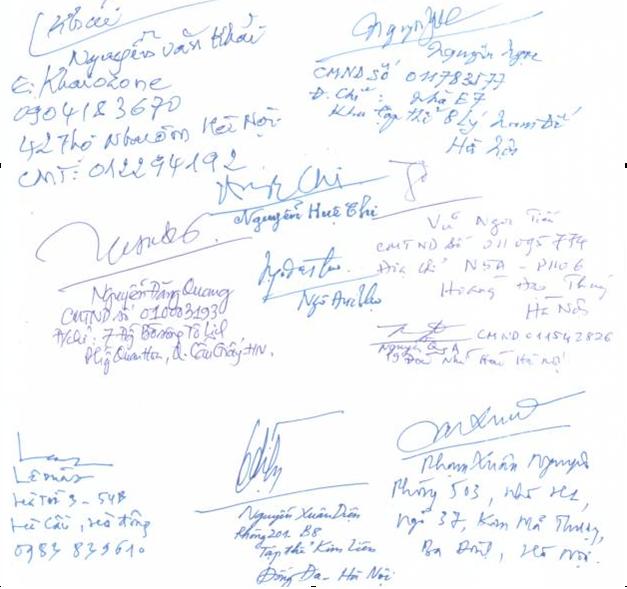 Khải
Nguyễn Văn Khải
E. Khaiozone
0904183670
42 Thợ Nhuộm Hà Nội
CMT: 012294192
Nguyễn Ngọc
CMND Số 011783577
Đ. Chỉ: Nhà E7
Khu tập thể 8 Lý Nam Đế
Hà Nội
Nguyễn Huệ Chi
Vũ Ngọc Tiến
CMTND Số 011095774
Địa chỉ N5A - P1106
Hoàng Đạo Thúy
Hà Nội
Nguyễn Đăng Quang
CMTND số 010003193
Đ/chỉ: 7 Bờ sông Tô Lịch
Phg Quan Hoa, Q. Cầu Giấy, HN.
CMND 011542826
Hà Nội
Lê
3 - 54B
Hà Cầu, Hà Đông
0983 839610
Nguyễn Xuân Diện
Phòng 201 B8
Tập thể Kim Liên
Đống Đa - Hà Nội
Phạm Xuân Nguyên
Phòng 503, nhà
ngõ 37, Kim Mã Thượng,
Ba Đình, Hà Nội.